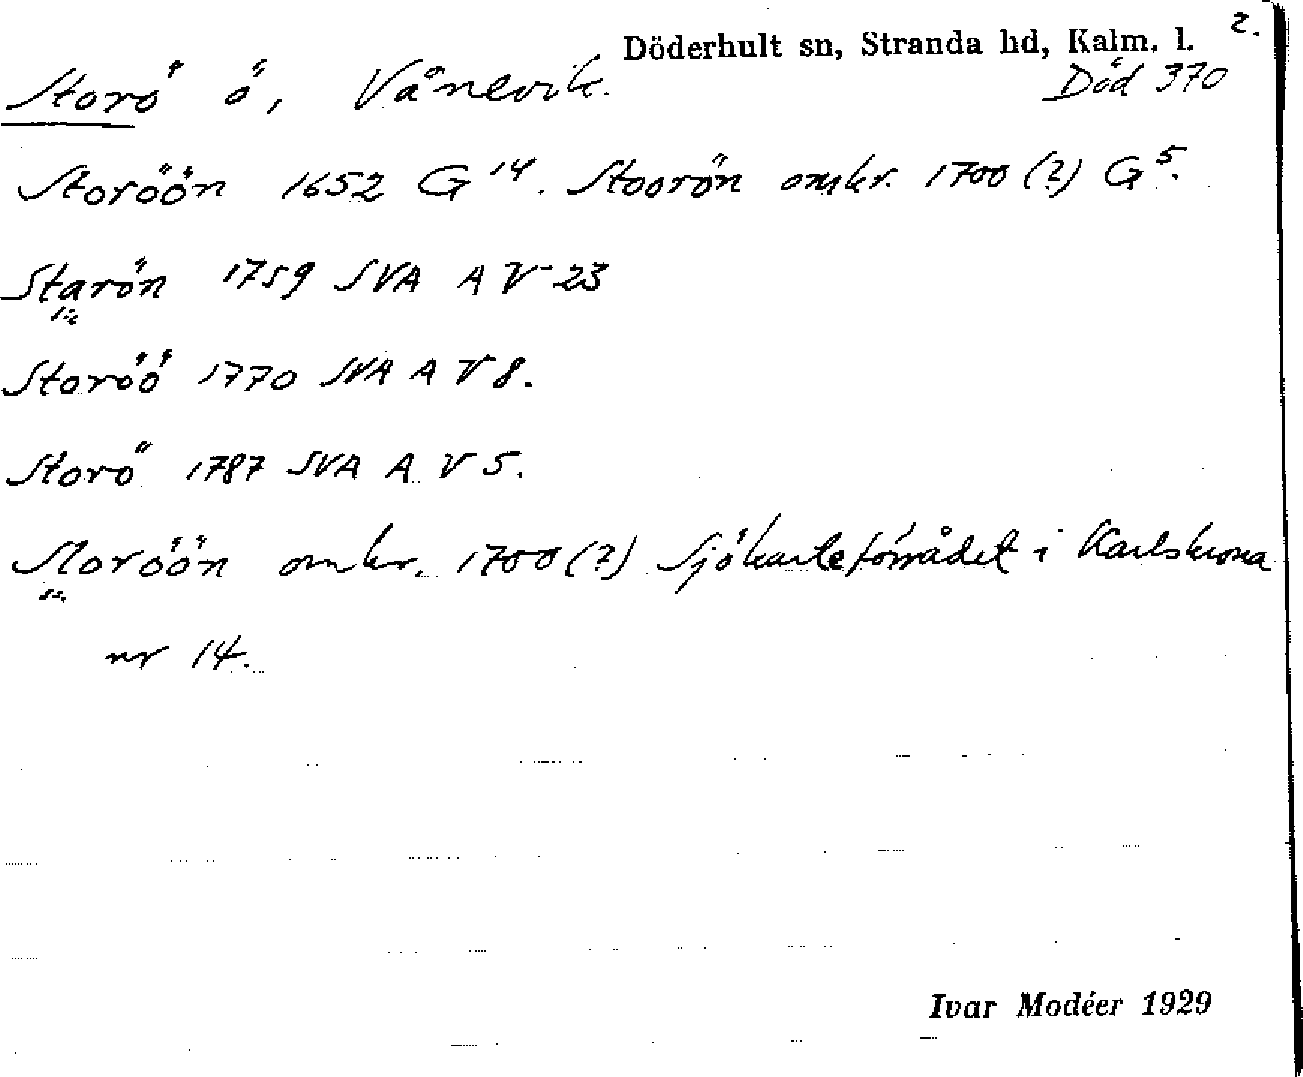 Döderhult sn, Stranda hd, Kalm. l. 2.
Storö ö, Vånevik. Död 370
Storöön 1652 G 14. Stoorön omkr. 1700 (?) G 5.
Starön 1759 SVA A V 23
Storöö 1770 SVA A V 8.
Storö 1787 SVA A V 5.
Moröön omkr. 1700 (?) Sjökarteförrådet i Karlskrona
nr 14.
Ivar Modéer 1929